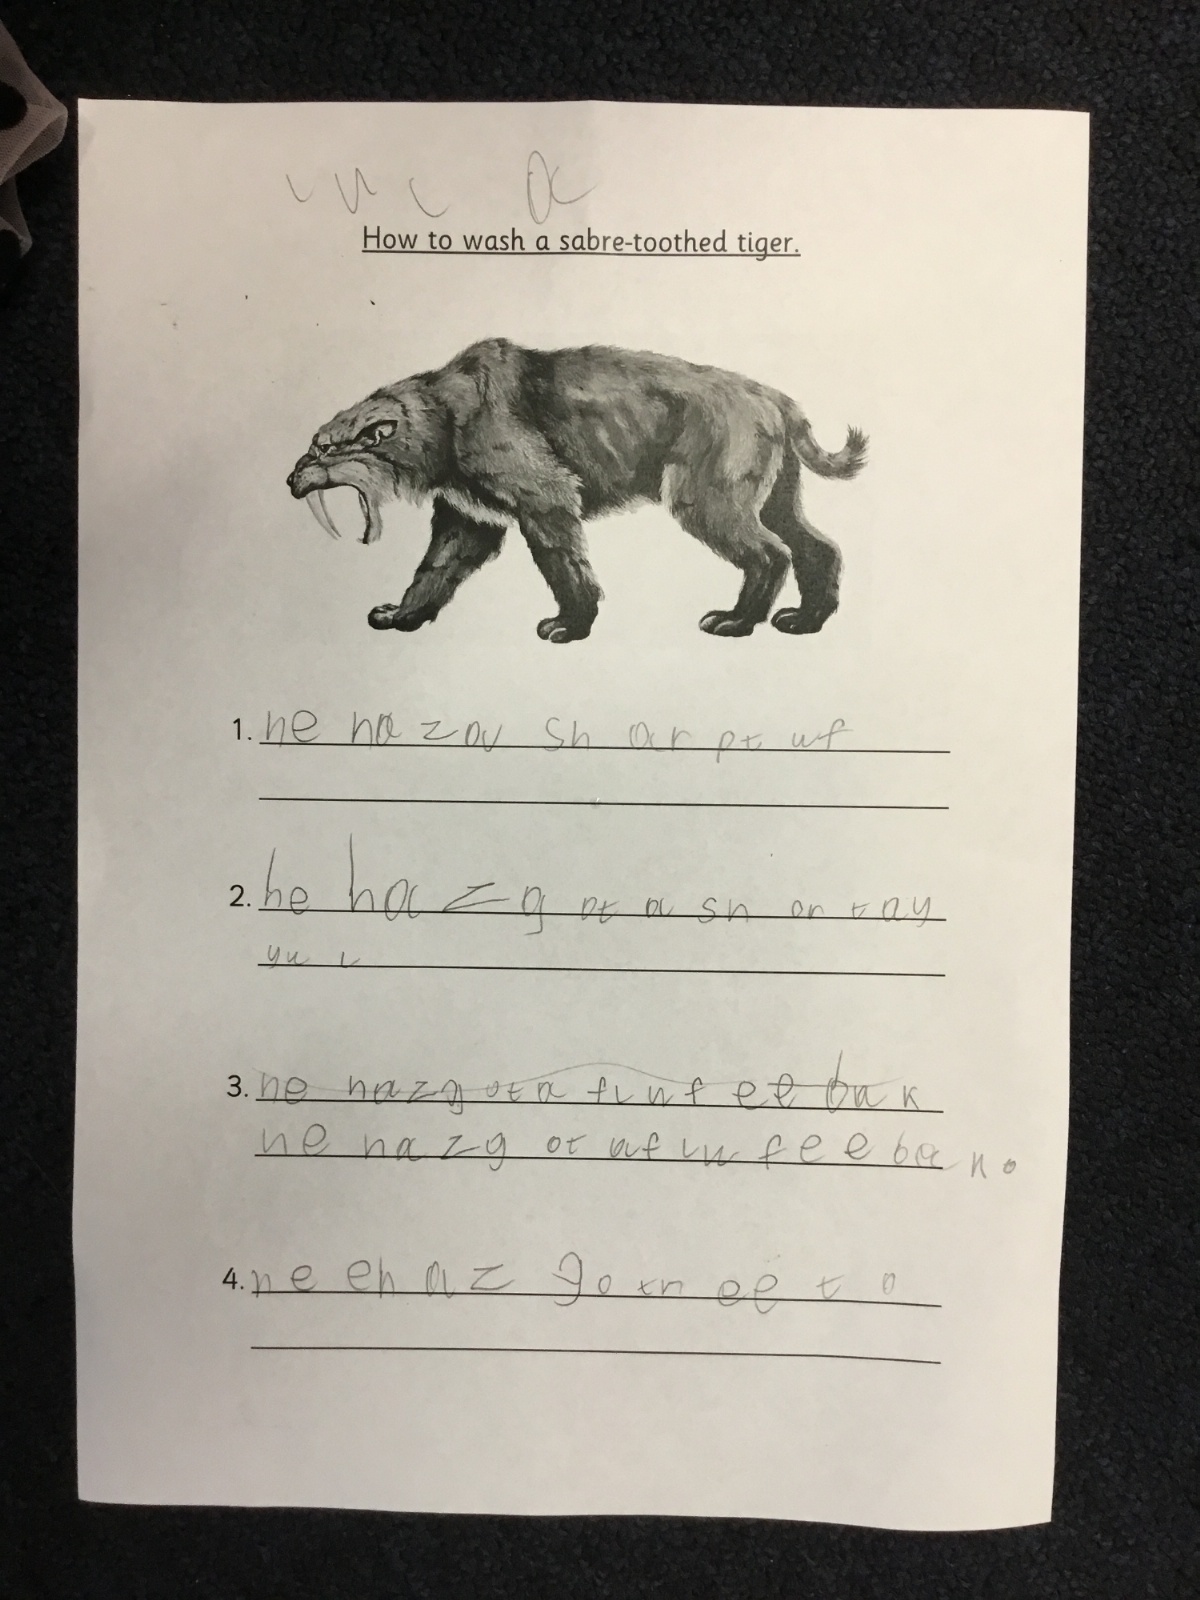 How to wash a sabre-toothed tiger.
1. he ha z a sh ar pt uf
2. he ha z g ot a sh or t ay
3. he haz g ot a flufee bak
he haz g ot a flufee bak.
4. he ehaz got n ee t o